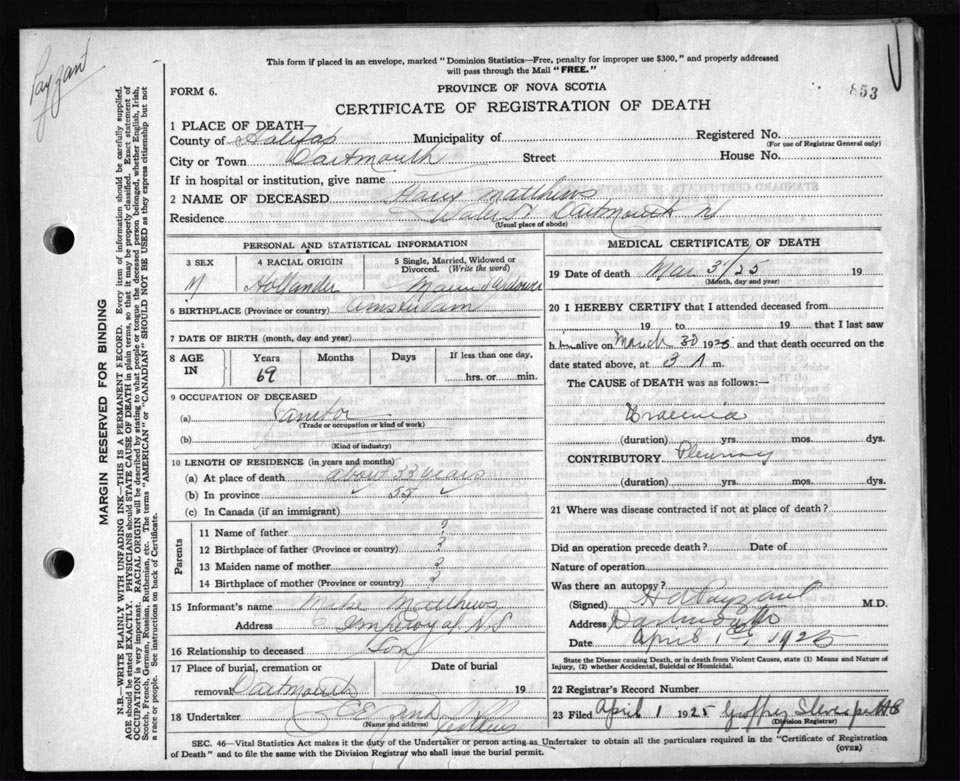 Payzant
This form if placed in an envelope, marked "Dominion Statistics—Free, penalty for improper use $300," and properly addressed
will pass through the Mail "FREE."
FORM 6.
PROVINCE OF NOVA SCOTIA
853
CERTIFICATE OF REGISTRATION OF DEATH
1 PLACE OF DEATH
County of Halifax Municipality of Registered No.
(For use of Registrar General only)
City or Town Dartmouth Street House No.
If in hospital or institution, give name
2 NAME OF DECEASED Harry Matthews
Residence Water St Dartmouth N
(Usual place of abode)
MARGIN RESERVED FOR BINDING
N.B.—WRITE PLAINLY WITH UNFADING INK—THIS IS A PERMANENT RECORD. Every item of information should be carefully supplied.
AGE should be stated EXACTLY. PHYSICIANS should STATE CAUSE OF DEATH in plain terms, so that it may be properly classified. Exact statement of
OCCUPATION is very important. RACIAL ORIGIN will be described by stating to what people or tongue the deceased person belonged, whether English, Irish,
Scotch, French, German, Russian, Ruthenian, etc. The terms "AMERICAN" or "CANADIAN" SHOULD NOT BE USED as they express citizenship but not
a race or people. See instructions on back of Certificate.
PERSONAL AND STATISTICAL INFORMATION
3 SEX 4 RACIAL ORIGIN 5 Single, Married, Widowed or
Divorced. (Write the word)
M Hollander
6 BIRTHPLACE (Province or country) Amsterdam
7 DATE OF BIRTH (month, day and year)
8 AGE IN Years Months Days If less than one day,
69 hrs. or min.
9 OCCUPATION OF DECEASED
(a) Janitor
(Trade or occupation or kind of work)
(b)
(Kind of industry)
10 LENGTH OF RESIDENCE (in years and months)
(a) At place of death about 33 years
(b) In province
(c) In Canada (if an immigrant)
Parents
11 Name of father ?
12 Birthplace of father (Province or country) ?
13 Maiden name of mother ?
14 Birthplace of mother (Province or country) ?
15 Informant's name Mike Matthews
Address Imperoyal N.S
16 Relationship to deceased Son
17 Place of burial, cremation or Date of burial
removal Dartmouth 19
18 Undertaker
(Name and address)
MEDICAL CERTIFICATE OF DEATH
19 Date of death Mar 31/25 19
(Month, day and year)
20 I HEREBY CERTIFY that I attended deceased from
19 to 19 that I last saw
him alive on March 30 1925 and that death occurred on
date stated above, at 3 A m.
The CAUSE of DEATH was as follows:—
Uraemia
(duration) yrs. mos. dys.
CONTRIBUTORY Pleurisy
(duration) yrs. mos. dys.
21 Where was disease contracted if not at place of death?
Did an operation precede death? Date of
Nature of operation
Was there an autopsy?
(Signed) H A Payzant M.D.
Address Dartmouth
Date April 1st, 1925
State the Disease causing Death, or in death from Violent Causes, state (1) Means and Nature of
Injury, (2) whether Accidental, Suicidal or Homicidal.
22 Registrar's Record Number
23 Filed April 1 1925 Geoffrey Stevens
(Division Registrar)
SEC. 46—Vital Statistics Act makes it the duty of the Undertaker or person acting as Undertaker to obtain all the particulars required in the "Certificate of Registration
of Death" and to file the same with the Division Registrar who shall issue the burial permit. (OVER)